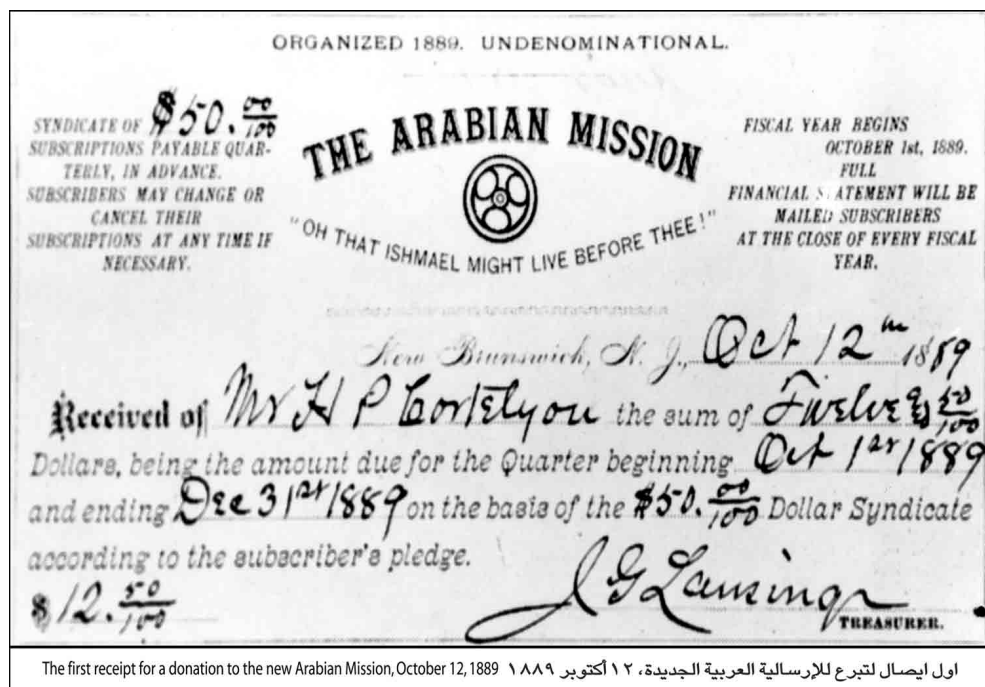 ORGANIZED 1889. UNDENOMINATIONAL.
SYNDICATE OF $50.00/100
SUBSCRIPTIONS PAYABLE QUAR-
TERLY, IN ADVANCE.
SUBSCRIBERS MAY CHANGE OR
CANCEL THEIR
SUBSCRIPTIONS AT ANY TIME IF
NECESSARY.
THE ARABIAN MISSION
"OH THAT ISHMAEL MIGHT LIVE BEFORE THEE!"
FISCAL YEAR BEGINS
OCTOBER 1st, 1889.
FULL
FINANCIAL STATEMENT WILL BE
MAILED SUBSCRIBERS
AT THE CLOSE OF EVERY FISCAL
YEAR.
New Brunswick, N. J., Oct 12th 1889
Received of Mr H P Cortelyou the sum of Twelve & 50/100
Dollars, being the amount due for the Quarter beginning Oct 1st 1889
and ending Dec 31st 1889 on the basis of the $50.00/100 Dollar Syndicate
according to the subscriber's pledge.
$12.50/100
J G Lansing
TREASURER.
The first receipt for a donation to the new Arabian Mission, October 12, 1889 اول ايصال لتبرع للإرسالية العربية الجديدة، ١٢ أكتوبر ١٨٨٩